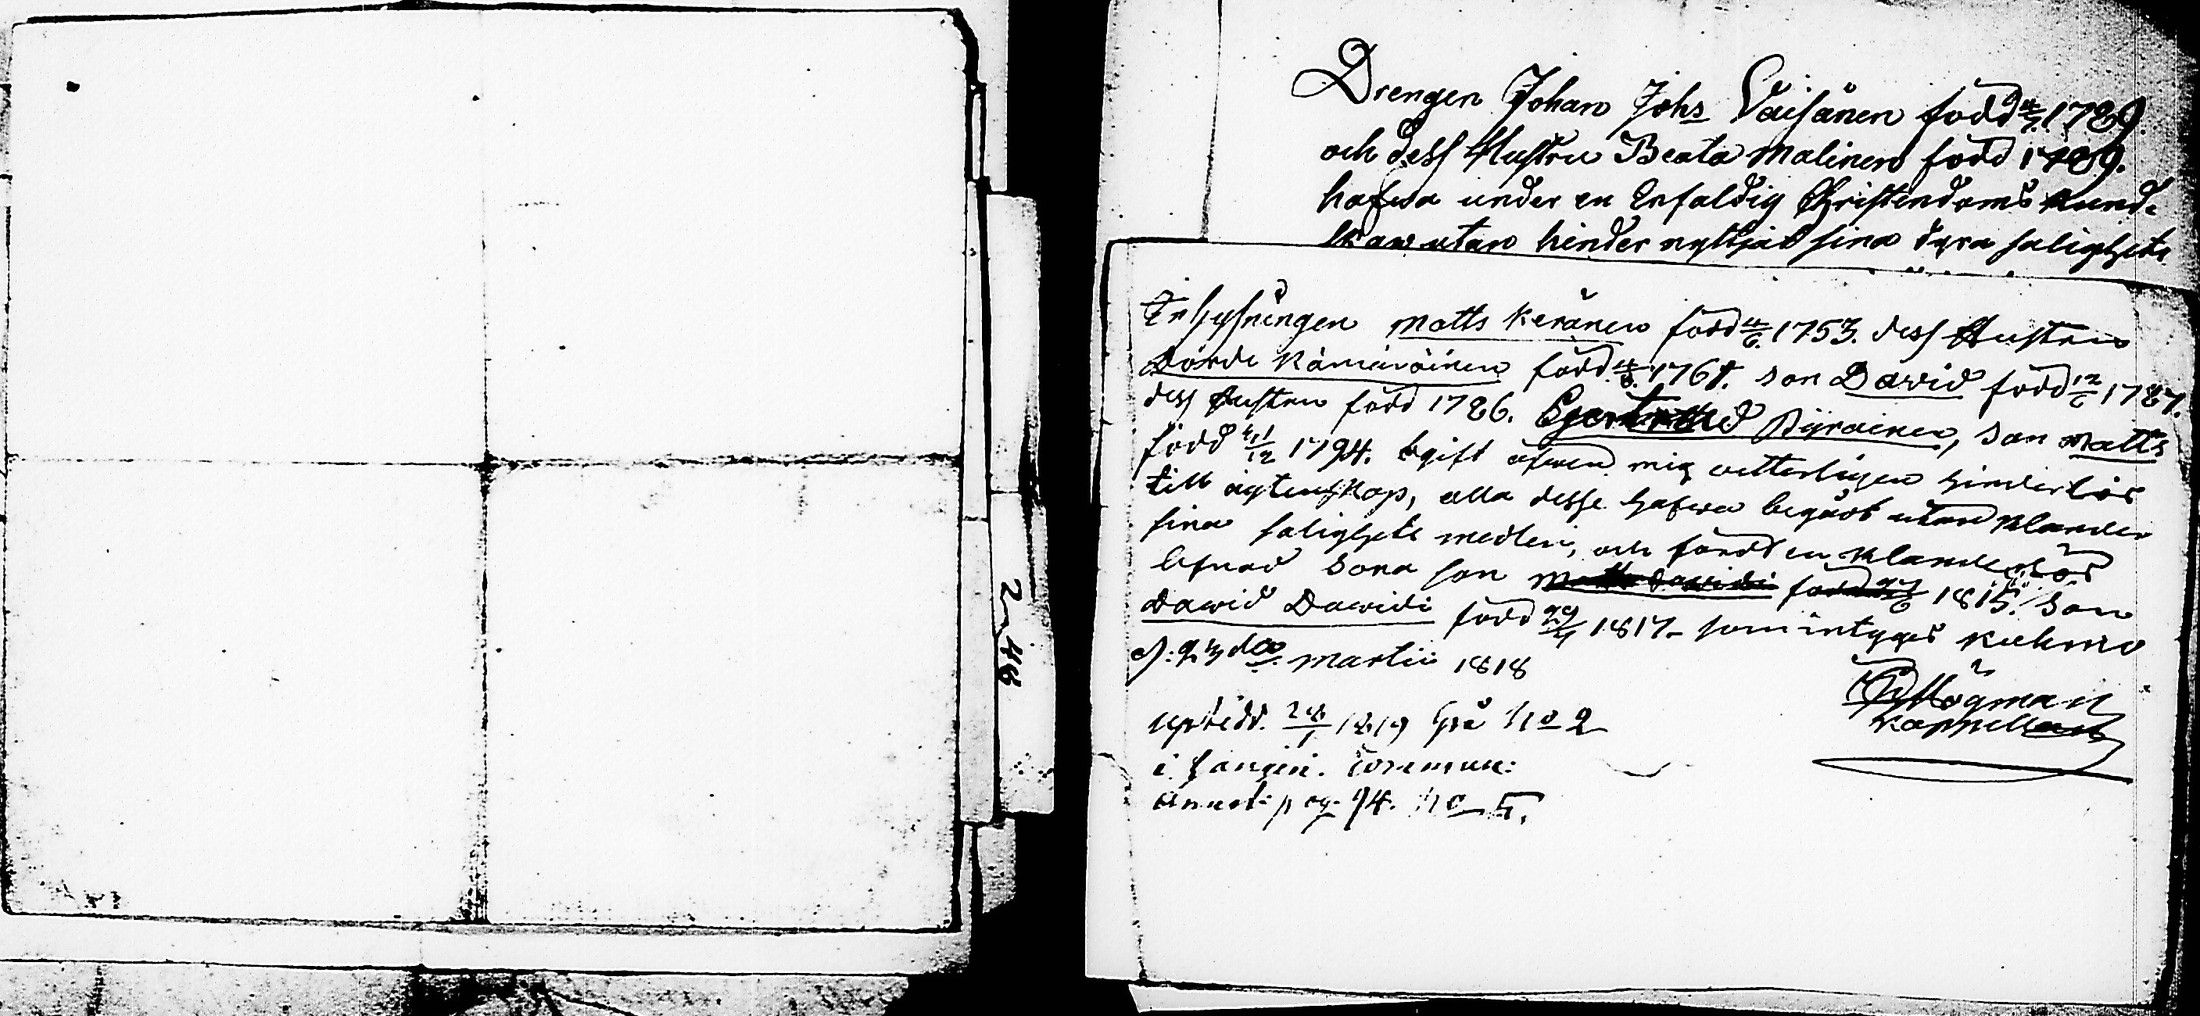 Drengen Johan Johs Väisänen född 4/7 1789
och dess Hustru Beata Malinen född 1789.
hafwa under en Enfaldig Christendoms Kund-
skap utan hinder nyttjat sina dyra salighets
Inhysningen Matts Keränen född 4/6. 1753. dess Hustru
Dorde Kämäräinen född 1761. son Dawid född 12/6 1787.
dess Hustru född 1786. Gertrud Pyykönen, son Matts
född 12 1794. ogift äfwen mig vetterligen hinderlös
till ägtenskap, alla desse hafwa begått utan klander
sina salighets medlen, och fördt en klanderlös
lefnad Sona son född 1815. Son
Dawid Dawidi född 29 1817 som intygas Kuhmo
d: 23 do Martii 1818
Högman
Kappellan
uptedd. 28/1 1819 No 2
i
Annot: pag. 94. No 5.
2 48